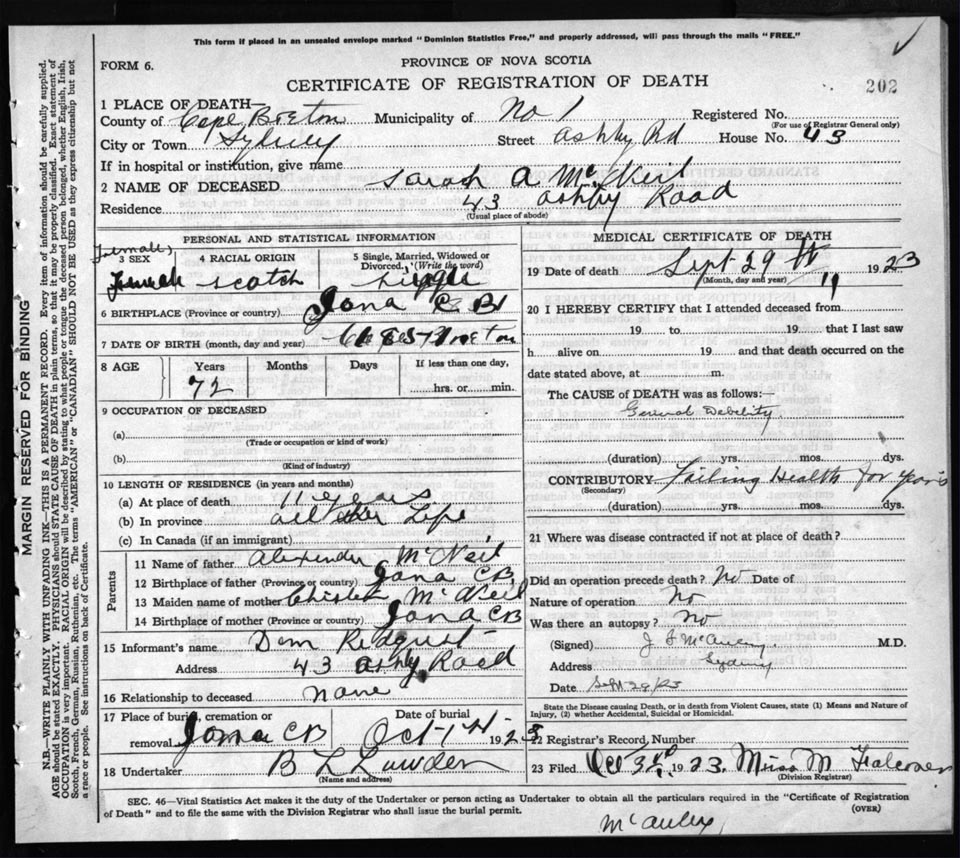 This form if placed in an unsealed envelope marked "Dominion Statistics Free," and properly addressed, will pass through the mails "FREE."
FORM 6.
PROVINCE OF NOVA SCOTIA
CERTIFICATE OF REGISTRATION OF DEATH
202
1 PLACE OF DEATH
County of Cape Breton Municipality of No 1 Registered No.
(For use of Registrar General only)
City or Town Sydney Street Ashby Rd House No. 43
If in hospital or institution, give name
2 NAME OF DECEASED Sarah A McNeil
Residence 43 Ashby Road
(Usual place of abode)
PERSONAL AND STATISTICAL INFORMATION
(Female)
3 SEX 4 RACIAL ORIGIN 5 Single, Married, Widowed or Divorced. (Write the word)
Female Scotch Single
6 BIRTHPLACE (Province or country) Iona C B
7 DATE OF BIRTH (month, day and year)
8 AGE Years Months Days If less than one day,
72 hrs. or min.
9 OCCUPATION OF DECEASED
(a)
(Trade or occupation or kind of work)
(b)
(Kind of industry)
10 LENGTH OF RESIDENCE (in years and months)
(a) At place of death 11 years
(b) In province all her Life
(c) In Canada (if an immigrant)
Parents
11 Name of father Alexander McNeil
12 Birthplace of father (Province or country) Iona CB
13 Maiden name of mother McNeil
14 Birthplace of mother (Province or country) Iona CB
15 Informant's name
Address 43 Ashby Road
16 Relationship to deceased none
17 Place of burial, cremation or removal Iona CB Date of burial Oct 1st 1923
18 Undertaker B L
(Name and address)
MEDICAL CERTIFICATE OF DEATH
19 Date of death Sept 29th 1923
(Month, day and year)
20 I HEREBY CERTIFY that I attended deceased from
19 to 19 that I last saw
h alive on 19 and that death occurred on the
date stated above, at m.
The CAUSE OF DEATH was as follows:
General Debility
(duration) yrs. mos. dys.
CONTRIBUTORY Failing Health for years
(Secondary)
(duration) yrs. mos. dys.
21 Where was disease contracted if not at place of death?
Did an operation precede death? No Date of
Nature of operation No
Was there an autopsy? No
(Signed) M.D.
Address Sydney
Date Sept 29/23
State the Disease causing Death, or in death from Violent Causes, state (1) Means and Nature of Injury, (2) whether Accidental, Suicidal or Homicidal.
22 Registrar's Record, Number
23 Filed Oct 3rd 1923 Miss M
(Division Registrar)
SEC. 46—Vital Statistics Act makes it the duty of the Undertaker or person acting as Undertaker to obtain all the particulars required in the "Certificate of Registration
of Death" and to file the same with the Division Registrar who shall issue the burial permit.
(OVER)
MARGIN RESERVED FOR BINDING
N.B.—WRITE PLAINLY WITH UNFADING INK—THIS IS A PERMANENT RECORD. Every item of information should be carefully supplied.
AGE should be stated EXACTLY. PHYSICIANS should STATE CAUSE OF DEATH in plain terms, so that it may be properly classified. Exact statement of
OCCUPATION is very important. RACIAL ORIGIN will be described by stating to what people or tongue the deceased person belonged, whether English, Irish,
Scotch, French, German, Russian, Ruthenian, etc. The terms "AMERICAN" or "CANADIAN" SHOULD NOT BE USED as they express citizenship but not
a race or people. See instructions on back of Certificate.